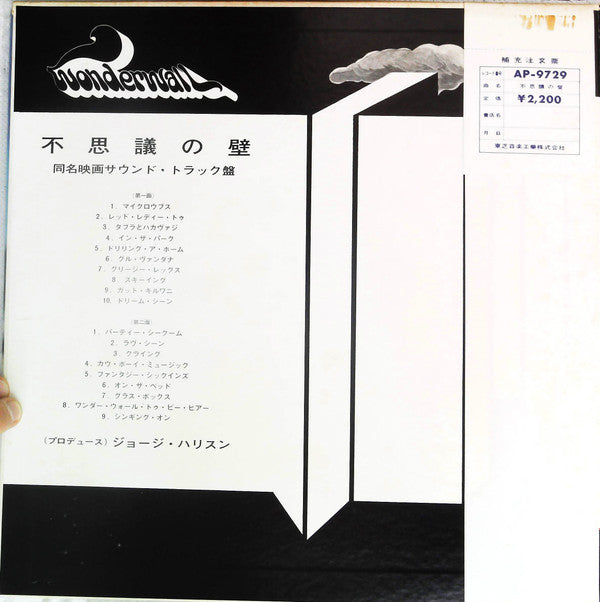 Wonderwall
不思議の壁
同名映画サウンド・トラック盤
(第一面)
1. マイクロウブス
2. レッド・レディー・トゥ
3. タブラとハカヴァジ
4. イン・ザ・パーク
5. ドリリング・ア・ホーム
6. グル・ヴァンダナ
7. グリージー・レッグス
8. スキーイング
9. ガット・キルワニ
10. ドリーム・シーン
(第二面)
1. パーティー・シークーム
2. ラヴ・シーン
3. クライング
4. カウ・ボーイ・ミュージック
5. ファンタジー・シックインズ
6. オン・ザ・ベッド
7. グラス・ボックス
8. ワンダー・ウォール・トゥ・ビー・ヒアー
9. シンキング・オン
(プロデュース) ジョージ・ハリスン
補充注文票
レコード番号 AP-9729
曲名 不思議の壁
定価 ¥2,200
書店名
月日
東芝音楽工業株式会社